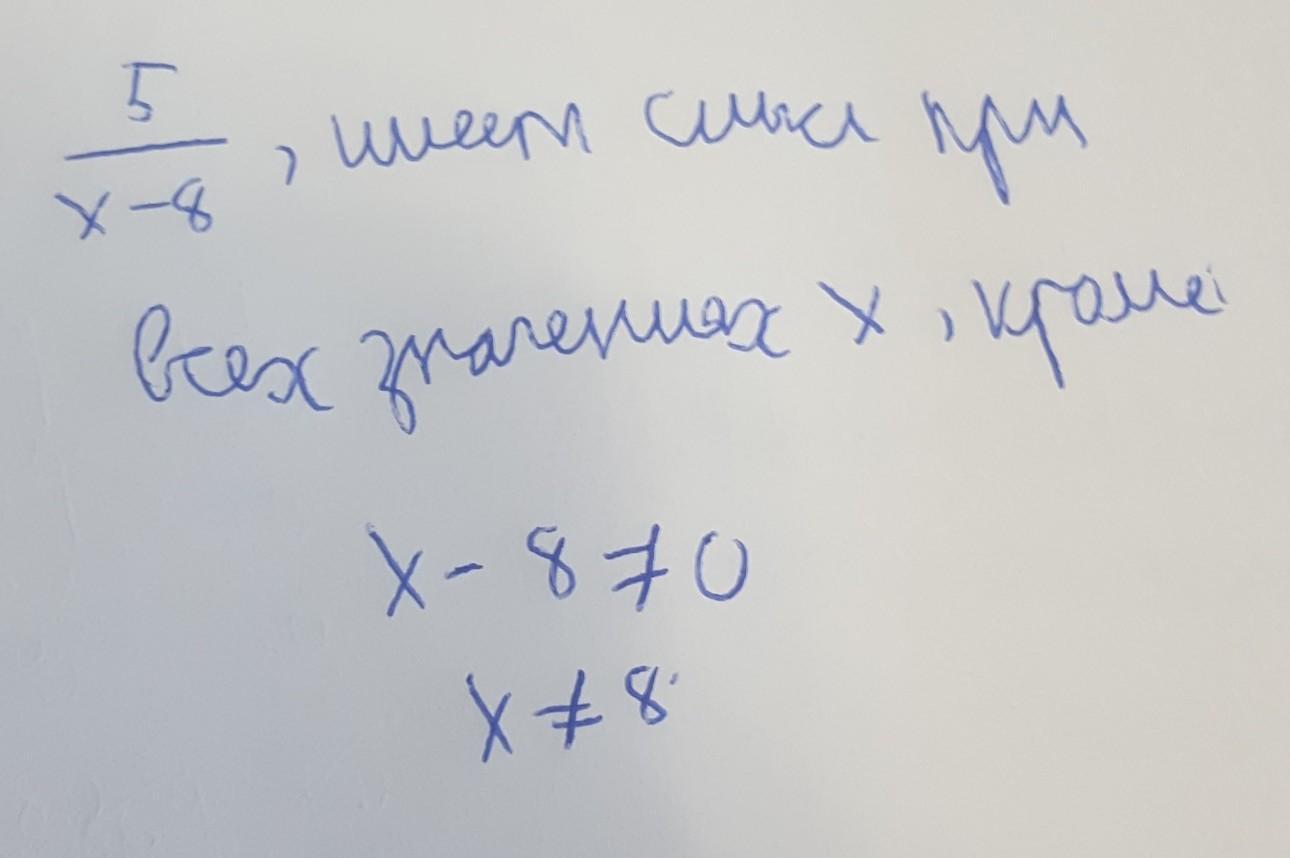 5
x-8
, имеет смысл при
всех значениях x, кроме
x - 8 ≠ 0
x ≠ 8